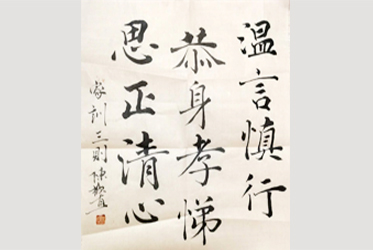 温言慎行
恭身孝悌
思正清心
家训三则